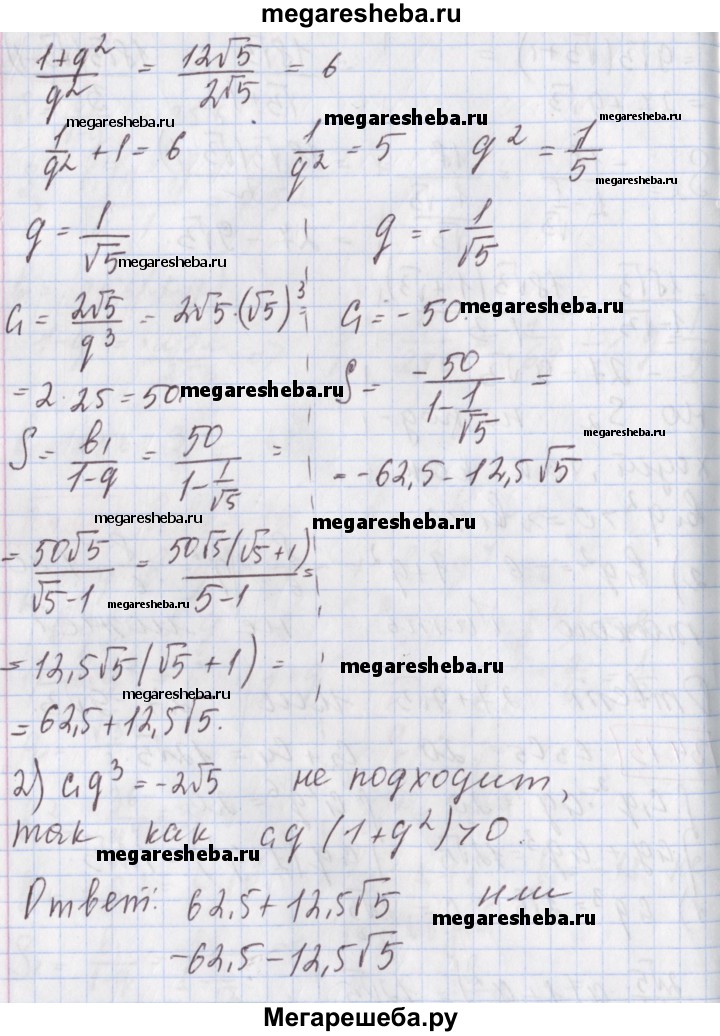 megaresheba.ru
(1+q²)/q² = 12√5/2√5 = 6
megaresheba.ru megaresheba.ru megaresheba.ru
1/q² + 1 = 6 1/q² = 5 q² = 1/5
megaresheba.ru
q = 1/√5 q = - 1/√5
megaresheba.ru
megaresheba.ru
C₁ = 2√5/q³ = 2√5·(√5)³ = C₁ = - 50.
= 2·25 = 50 S = -50/(1-1/√5) =
megaresheba.ru
megaresheba.ru
S = b₁/(1-q) = 50/(1-1/√5) = = -62,5 - 12,5√5
megaresheba.ru
megaresheba.ru
= 50√5/(√5-1) = 50√5(√5+1)/(5-1) =
megaresheba.ru
= 12,5√5(√5+1) =
megaresheba.ru
megaresheba.ru
= 62,5+12,5√5.
2) C₁q³ = -2√5 не подходит,
так как C₁q(1+q²)>0.
megaresheba.ru
Ответ: 62,5+12,5√5 или
megaresheba.ru
-62,5-12,5√5
Мегарешеба.ру